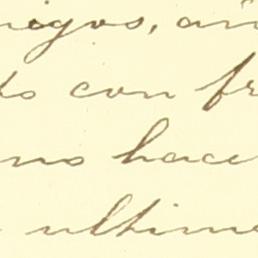 nigos, an
to con fr
no hace
ultime